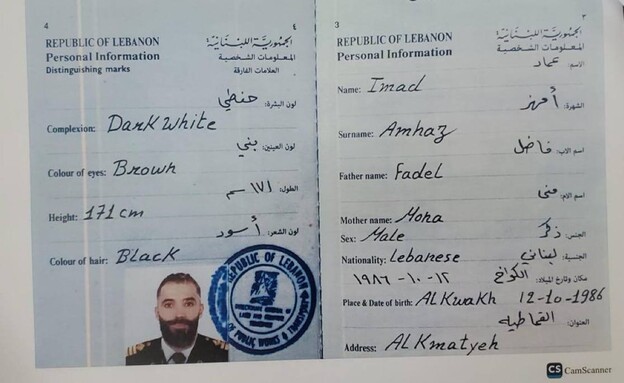 4
٤
REPUBLIC OF LEBANON
الجمهوريّة اللبنانيّة
Personal Information
المعلومات الشخصية
Distinguishing marks
العلامات الفارقة
حنطي
لون البشرة:
Complexion: Dark White
بني
لون العينين:
Colour of eyes: Brown
الطول: ١٧١ سم
Height: 171 cm
لون الشعر: أسود
Colour of hair: Black
REPUBLIC OF LEBANON
OF PUBLIC WORKS & TRANSPORT
3
٣
REPUBLIC OF LEBANON
الجمهوريّة اللبنانيّة
Personal Information
المعلومات الشخصية
الاسم: عماد
Name: Imad
الشهرة: أمهز
Surname: Amhaz
اسم الاب: فاضل
Father name: Fadel
اسم الام: منى
Mother name: Mona
Sex: Male
الجنس: ذكر
Nationality: Lebanese
الجنسية: لبناني
مكان وتاريخ الميلاد: الكواخ ١٢-١٠-١٩٨٦
Place & Date of birth: Al Kwakh 12-10-1986
العنوان: القماطية
Address: Al Kmatyeh
CS CamScanner